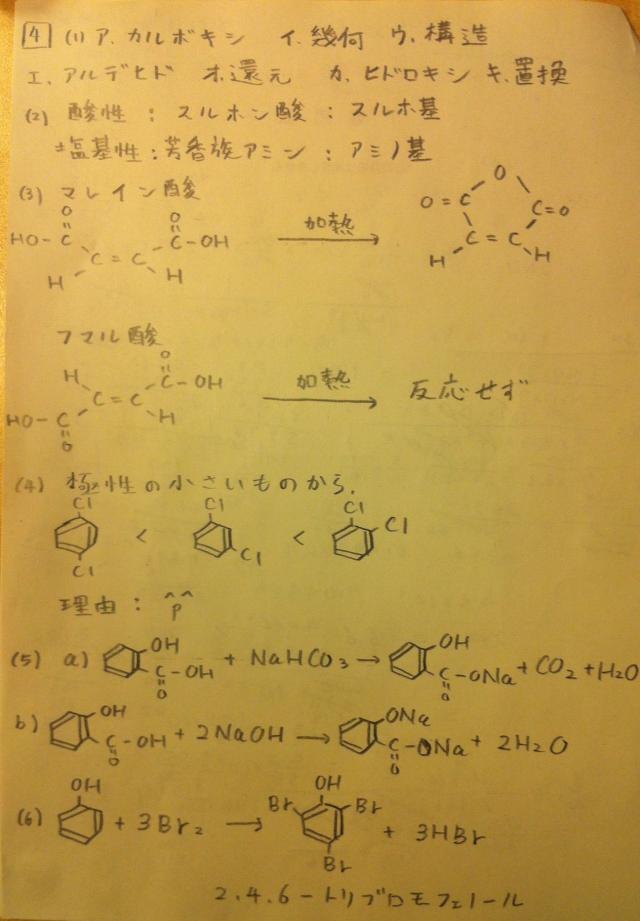 4 (1) ア. カルボキシ イ. 幾何 ウ. 構造
エ. アルデヒド オ. 還元 カ. ヒドロキシ キ. 置換
(2) 酸性 : スルホン酸 : スルホ基
塩基性 : 芳香族アミン : アミノ基
(3) マレイン酸
O O
HO-C C-OH
C=C
H H
加熱
O
O=C C=O
C=C
H H
フマル酸
O
H C-OH
C=C
HO-C H
O
加熱
反応せず
(4) 極性の小さいものから.
Cl Cl Cl
< < Cl
Cl Cl
理由 : ^p^
(5) a) OH C-OH O + NaHCO3 → OH C-ONa O + CO2 + H2O
b) OH C-OH O + 2NaOH → ONa C-ONa O + 2H2O
(6) OH + 3Br2 → OH Br Br Br + 3HBr
2.4.6-トリブロモフェノール